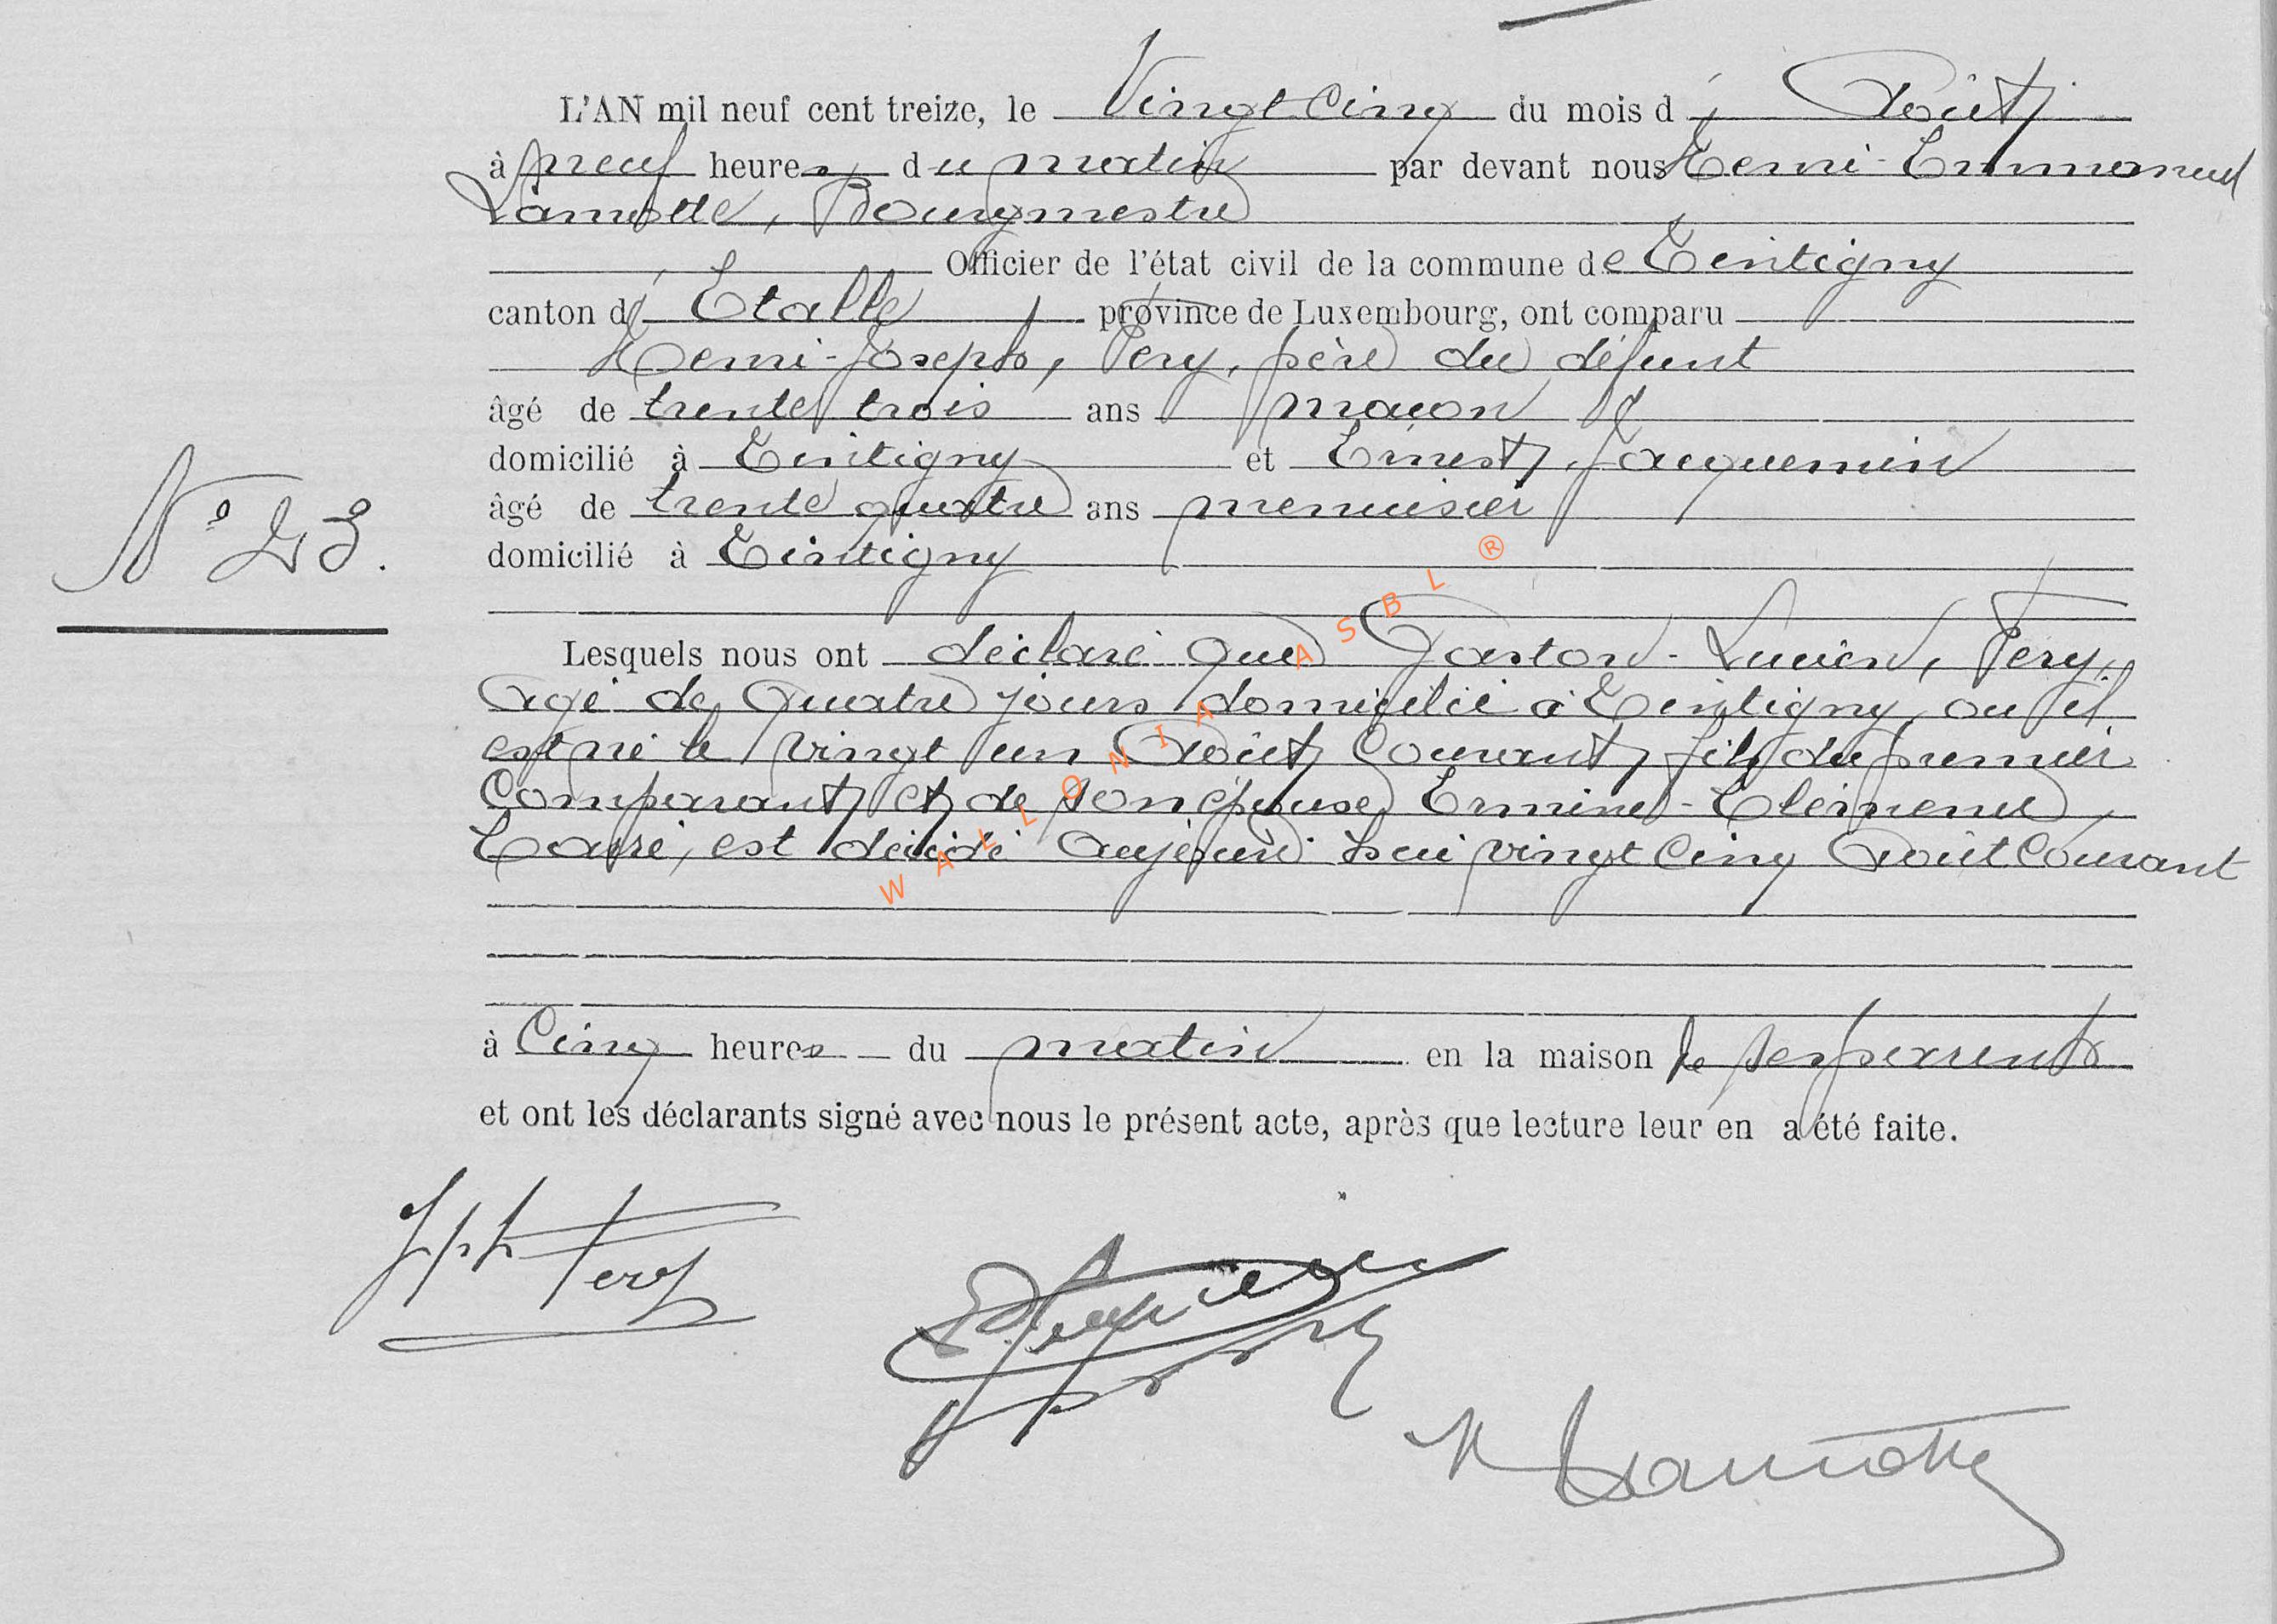 L'AN mil neuf cent treize, le Vingt Cinq du mois d' Août
à neuf heures du matin par devant nous Henri-Emmanuel
Lamotte, Bourgmestre
Officier de l'état civil de la commune de Tintigny
canton d' Etalle province de Luxembourg, ont comparu
Henri-Joseph, Fery, père du défunt
âgé de trente trois ans maçon
domicilié à Tintigny et Ernest, Jacquemin
âgé de trente quatre ans menuisier
domicilié à Tintigny
N° 23.
Lesquels nous ont déclaré que Gaston-Lucien, Fery,
agé de quatre jours domicilié à Tintigny, ou il
est né le vingt un Août Courant, fils du premier
Comparant et de son épouse Ermine-Clémence,
est décédé aujourd'hui vingt cinq Août Courant
à Cinq heures du matin en la maison de ses parents
et ont les déclarants signé avec nous le présent acte, après que lecture leur en a été faite.
Jph Fery
E Jacquemin
H Lamotte
WALLONIA ASBL ®